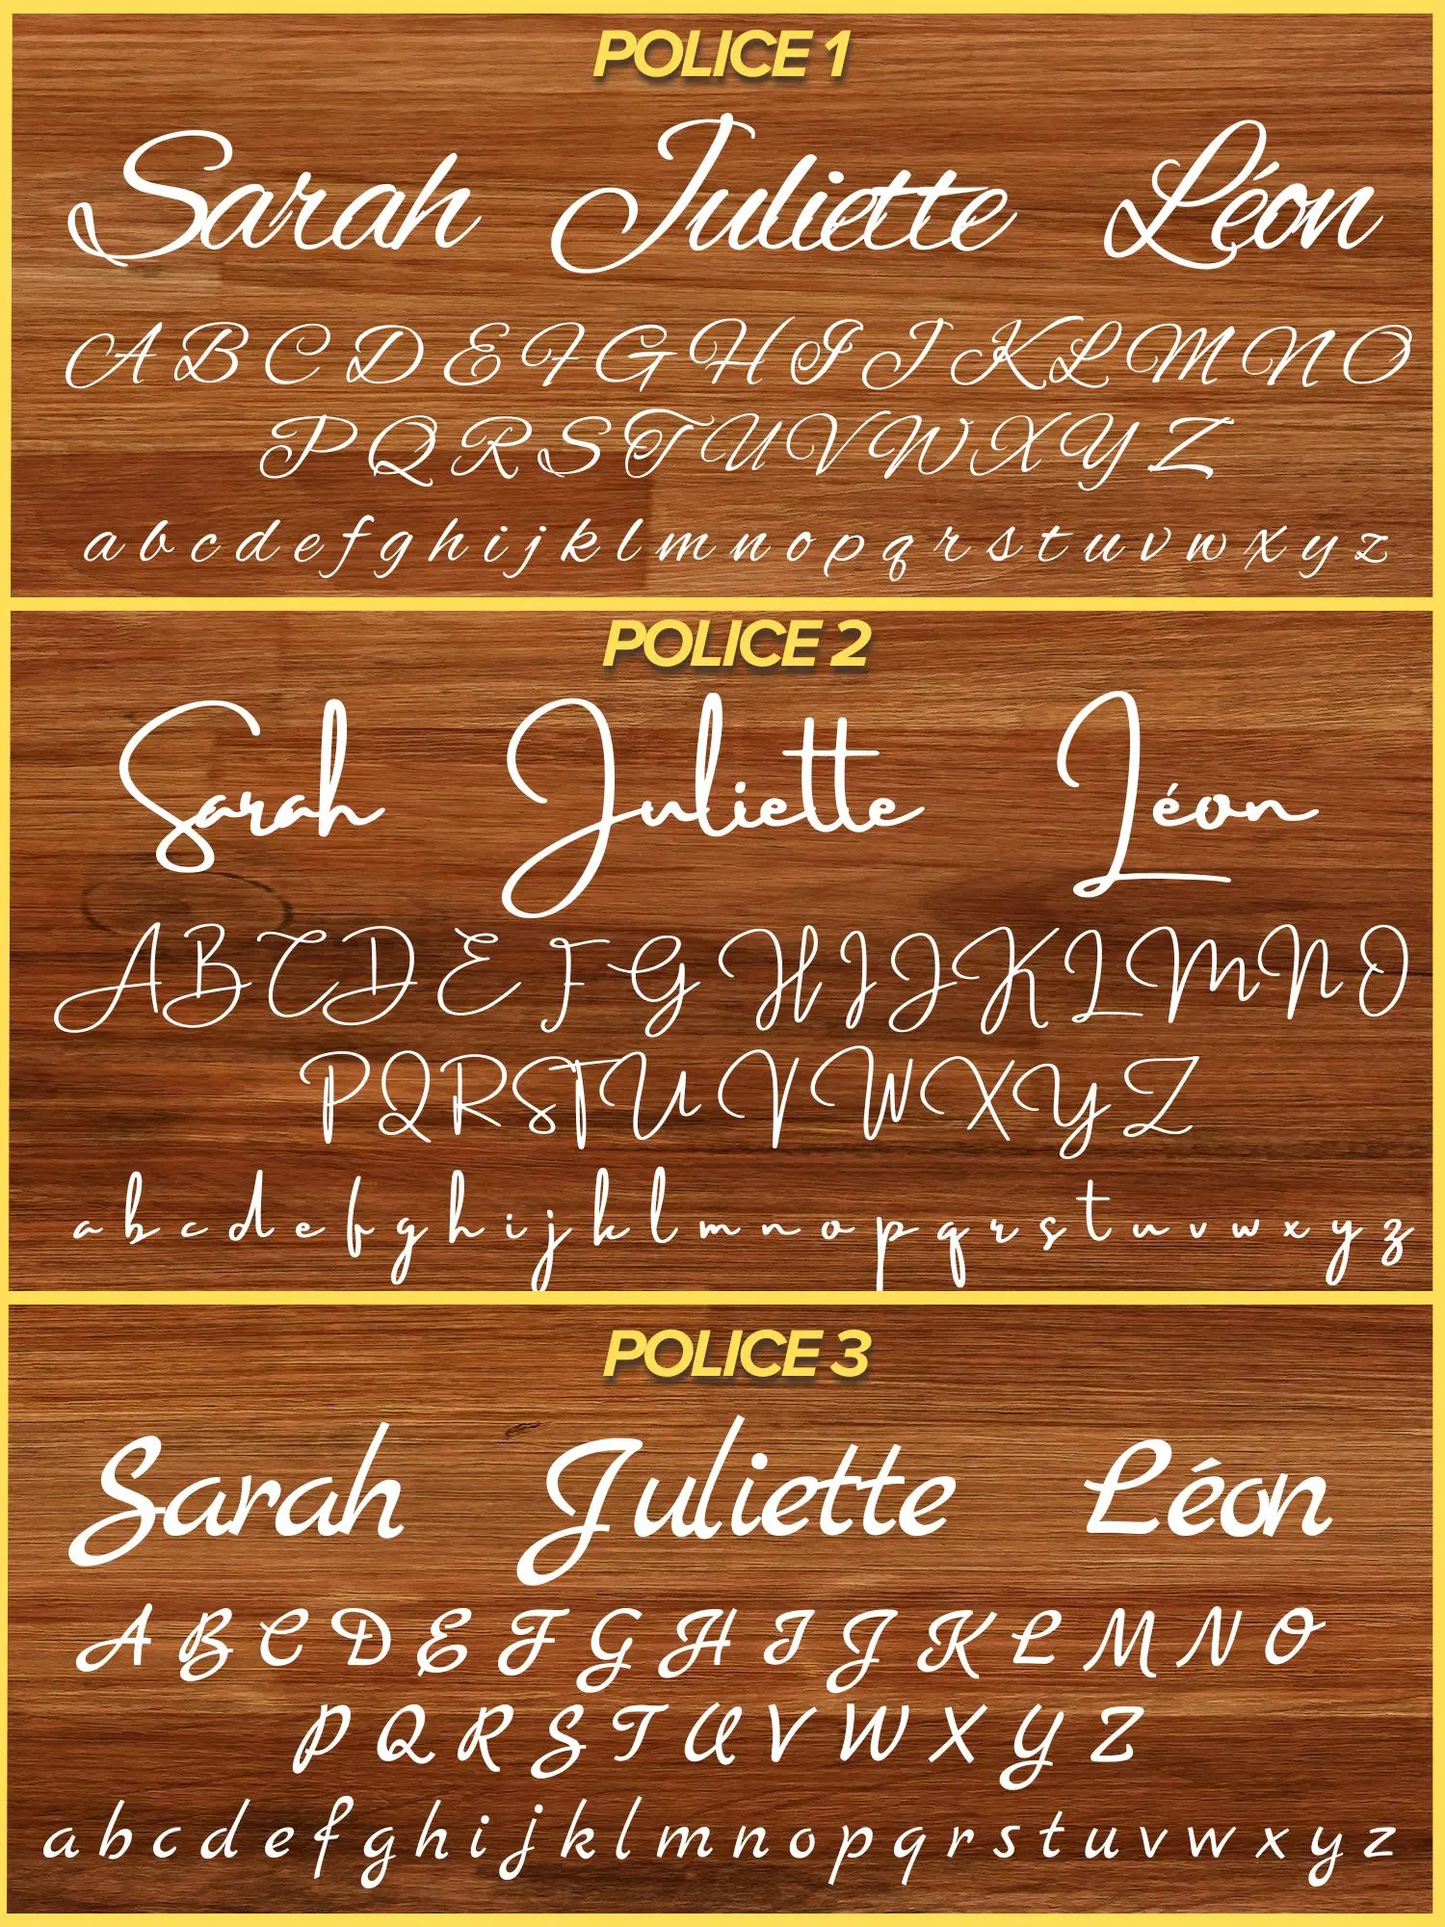 POLICE 1
Sarah Juliette Léon
A B C D E F G H I J K L M N O
P Q R S T U V W X Y Z
a b c d e f g h i j k l m n o p q r s t u v w x y z
POLICE 2
Sarah Juliette Léon
A B C D E F G H I J K L M N O
P Q R S T U V W X Y Z
a b c d e f g h i j k l m n o p q r s t u v w x y z
POLICE 3
Sarah Juliette Léon
A B C D E F G H I J K L M N O
P Q R S T U V W X Y Z
a b c d e f g h i j k l m n o p q r s t u v w x y z